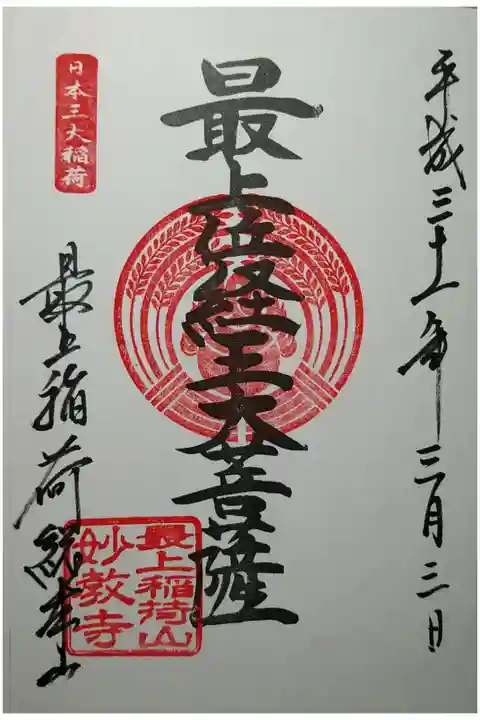 平成三十一年三月三日
最上位経王大菩薩
日本三大稲荷
最上稲荷総本山
最上稲荷山
妙教寺